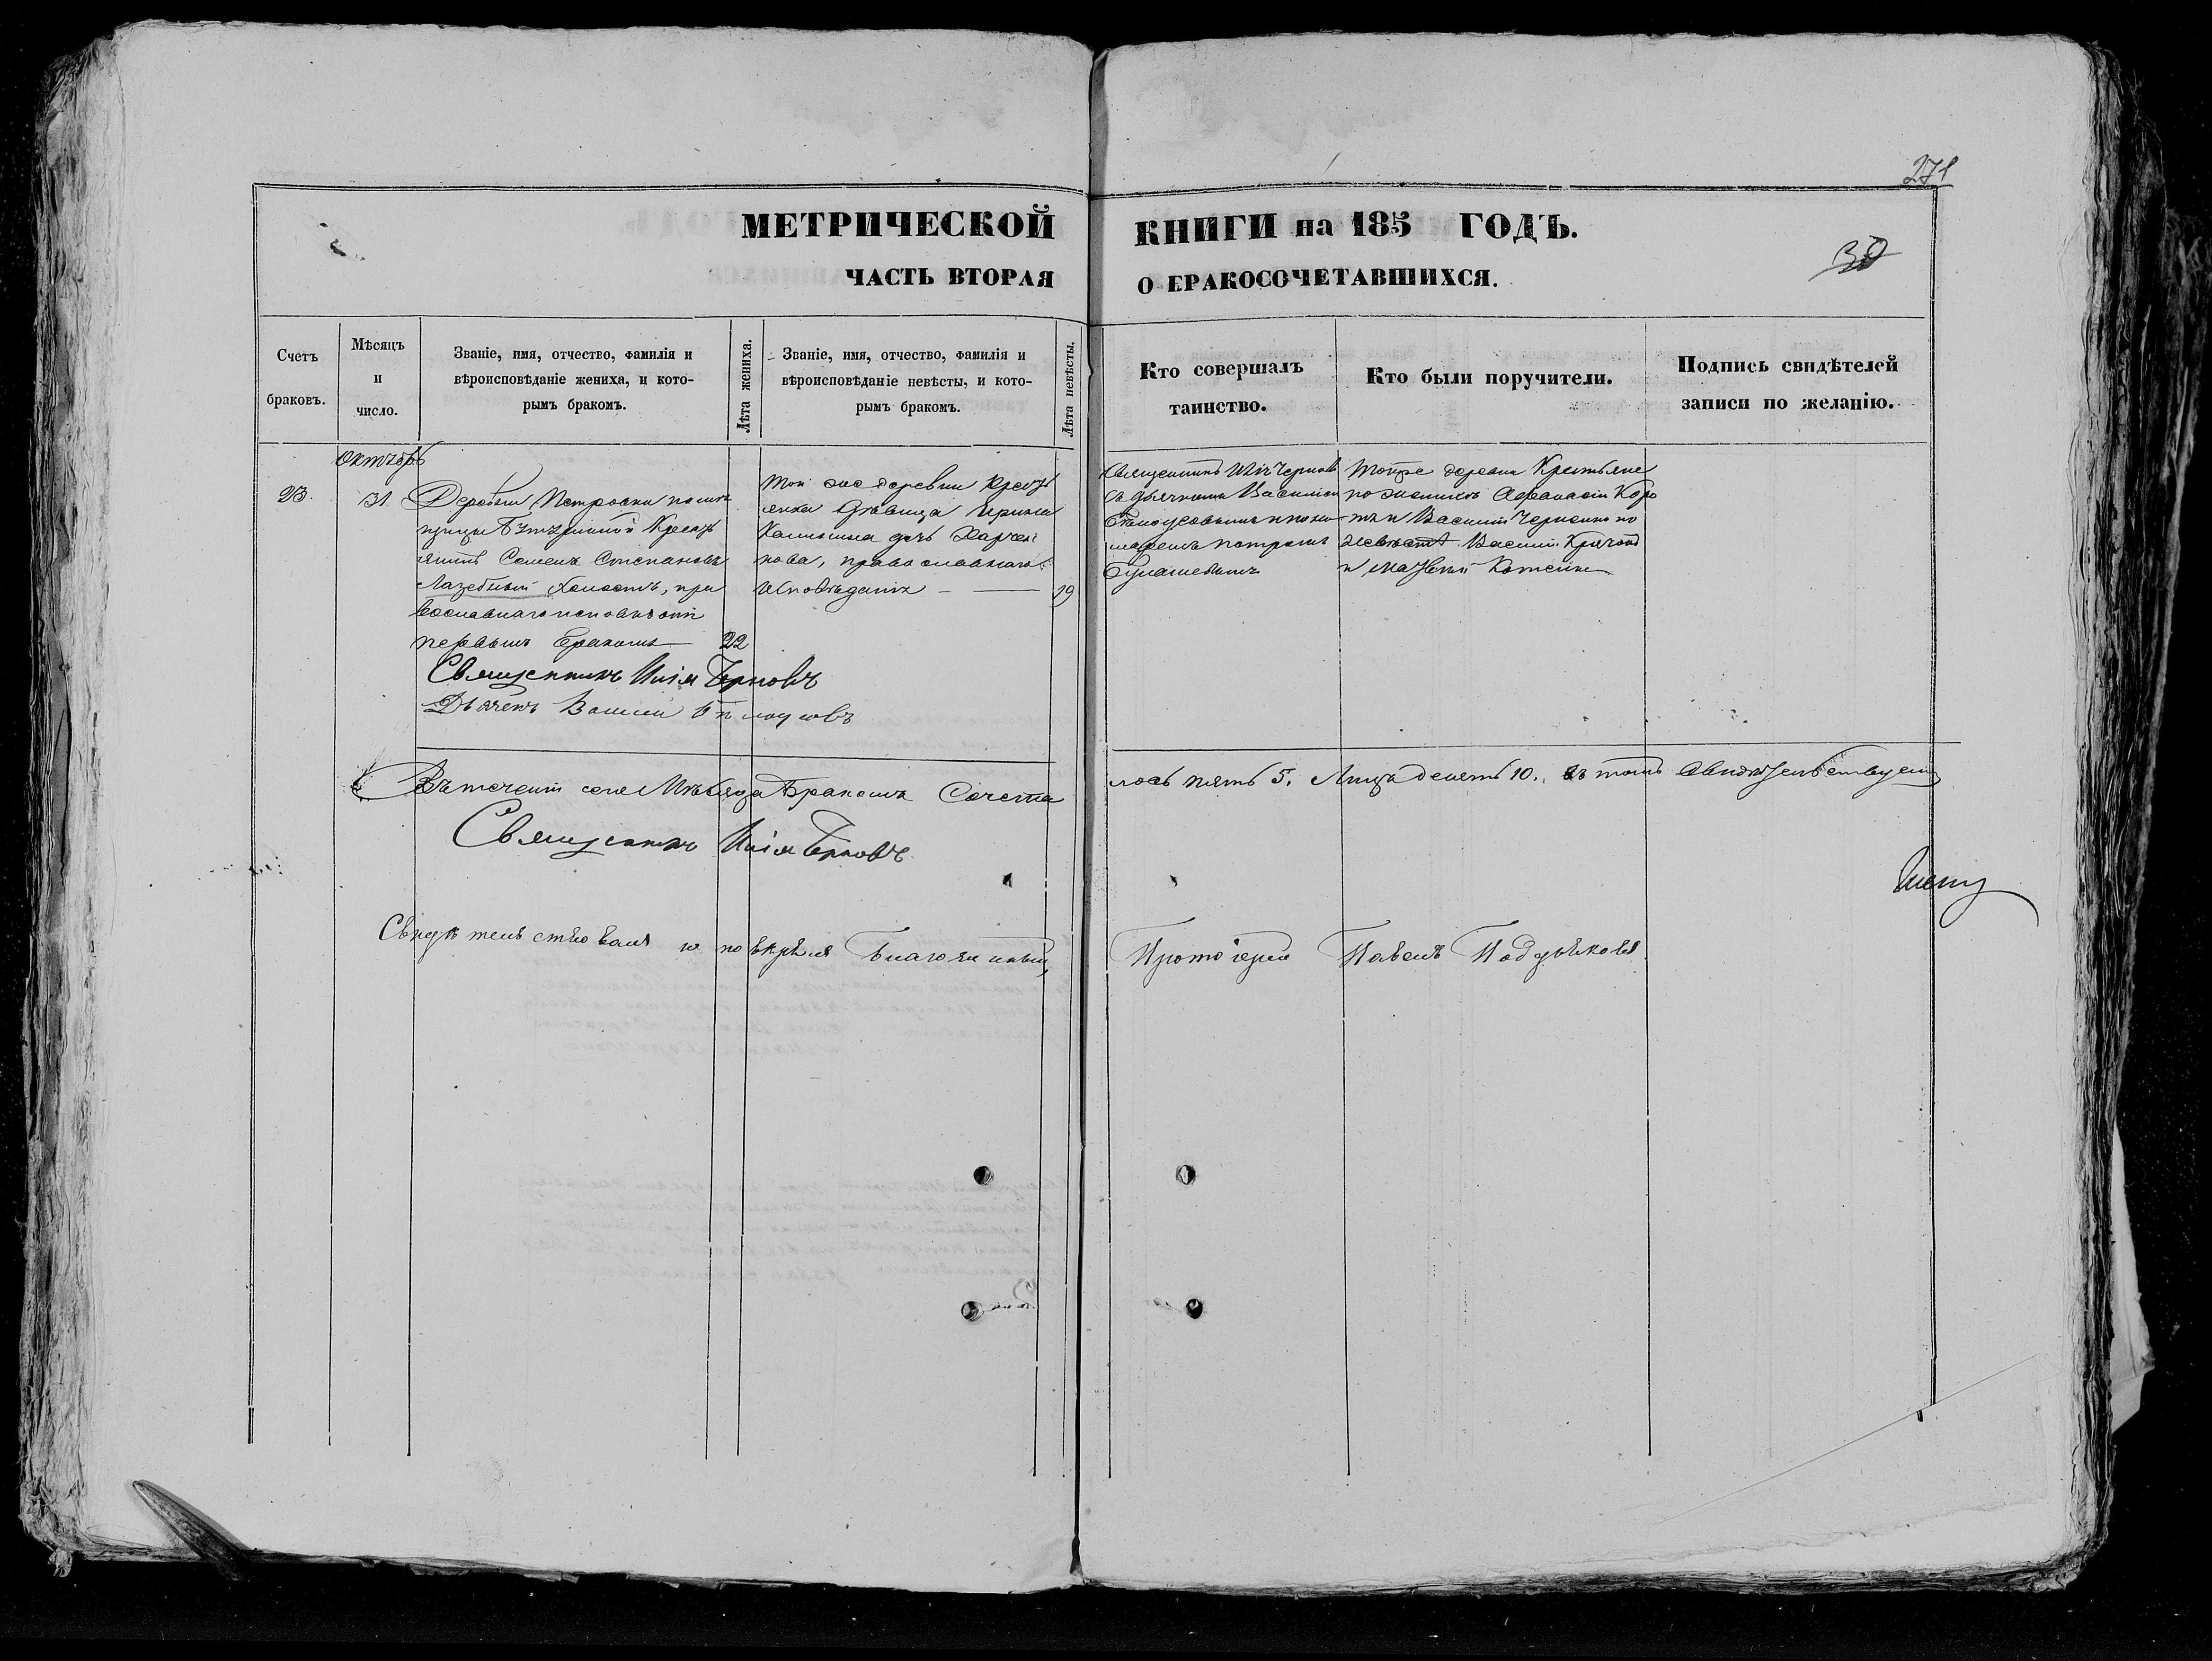 271
МЕТРИЧЕСКОЙ КНИГИ на 185 ГОДЪ.
30
ЧАСТЬ ВТОРАЯ О БРАКОСОЧЕТАВШИХСЯ.
Счетъ браковъ.
Мѣсяцъ и число.
Званіе, имя, отчество, фамилія и
вѣроисповѣданіе жениха, и кото-
рымъ бракомъ.
Лѣта жениха.
Званіе, имя, отчество, фамилія и
вѣроисповѣданіе невѣсты, и кото-
рымъ бракомъ.
Лѣта невѣсты.
Кто совершалъ
таинство.
Кто были поручители.
Подпись свидѣтелей
записи по желанію.
Октября
23.
31.
Деревни Петровки помѣ
щицы Крестъ
янинъ Семенъ Стефановъ
Лазебный Холостъ, пра
вославнаго исповѣданія
первымъ бракомъ
22
Той же деревни Крестъ
янка Дѣвица Ирина
дочь Харчен
кова, православнаго
исповѣданія
19
Священникъ Илія Черновъ
съ дьячкомъ Василіемъ
Бѣлоусовымъ и поно
маремъ Петромъ
Той же деревни Крестьяне
по женихѣ Афанасій Коро
и Василій Черненко по
невѣстѣ Василій
и
Священникъ Илія Черновъ
Дьячекъ Василій Бѣлоусовъ
Въ теченіи сего Мѣсяца Бракомъ Сочета
лось пять 5. Лицъ десять 10. въ томъ Свидѣтельствуемъ
Священникъ Илія Черновъ
Свидѣтельствовалъ и повѣрялъ Благочинный,
Протоіерей Павелъ